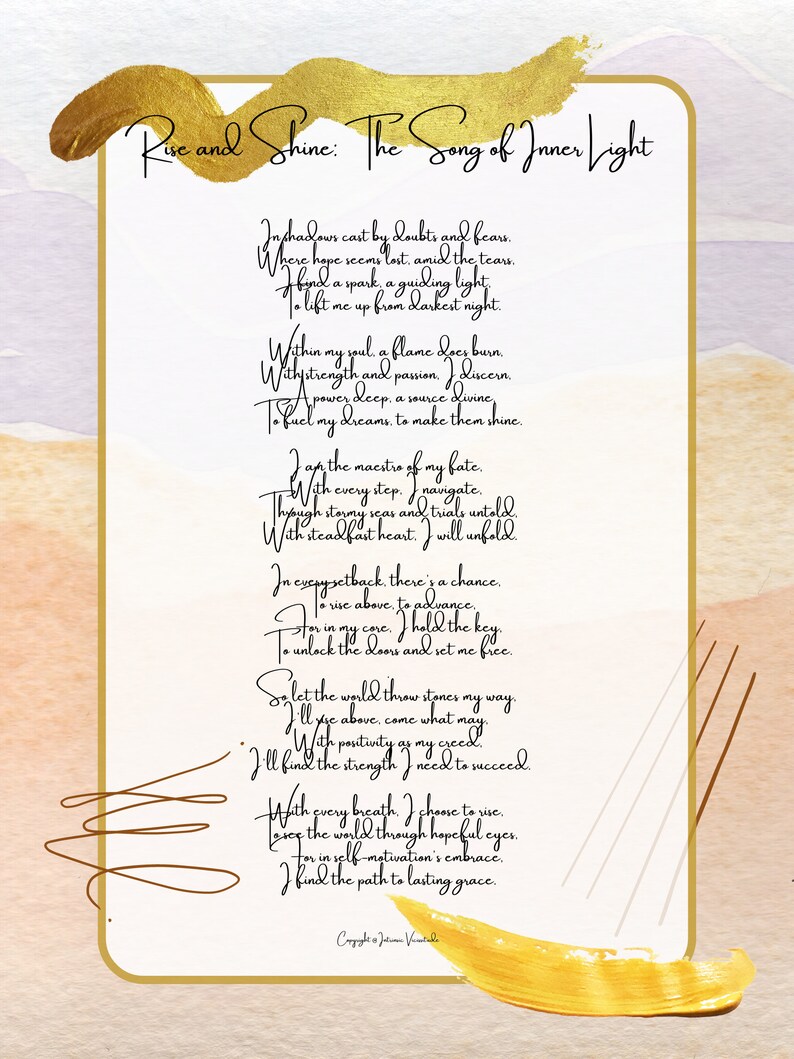 Rise and Shine: The Song of Inner Light
In shadows cast by doubts and fears,
Where hope seems lost, amid the tears,
I find a spark, a guiding light,
To lift me up from darkest night.
Within my soul, a flame does burn,
With strength and passion, I discern,
A power deep, a source divine,
To fuel my dreams, to make them shine.
I am the maestro of my fate,
With every step, I navigate,
Through stormy seas and trials untold,
With steadfast heart, I will unfold.
In every setback, there's a chance,
To rise above, to advance,
For in my core, I hold the key,
To unlock the doors and set me free.
So let the world throw stones my way,
I'll rise above, come what may,
With positivity as my creed,
I'll find the strength I need to succeed.
With every breath, I choose to rise,
To see the world through hopeful eyes,
For in self-motivation's embrace,
I find the path to lasting grace.
Copyright @